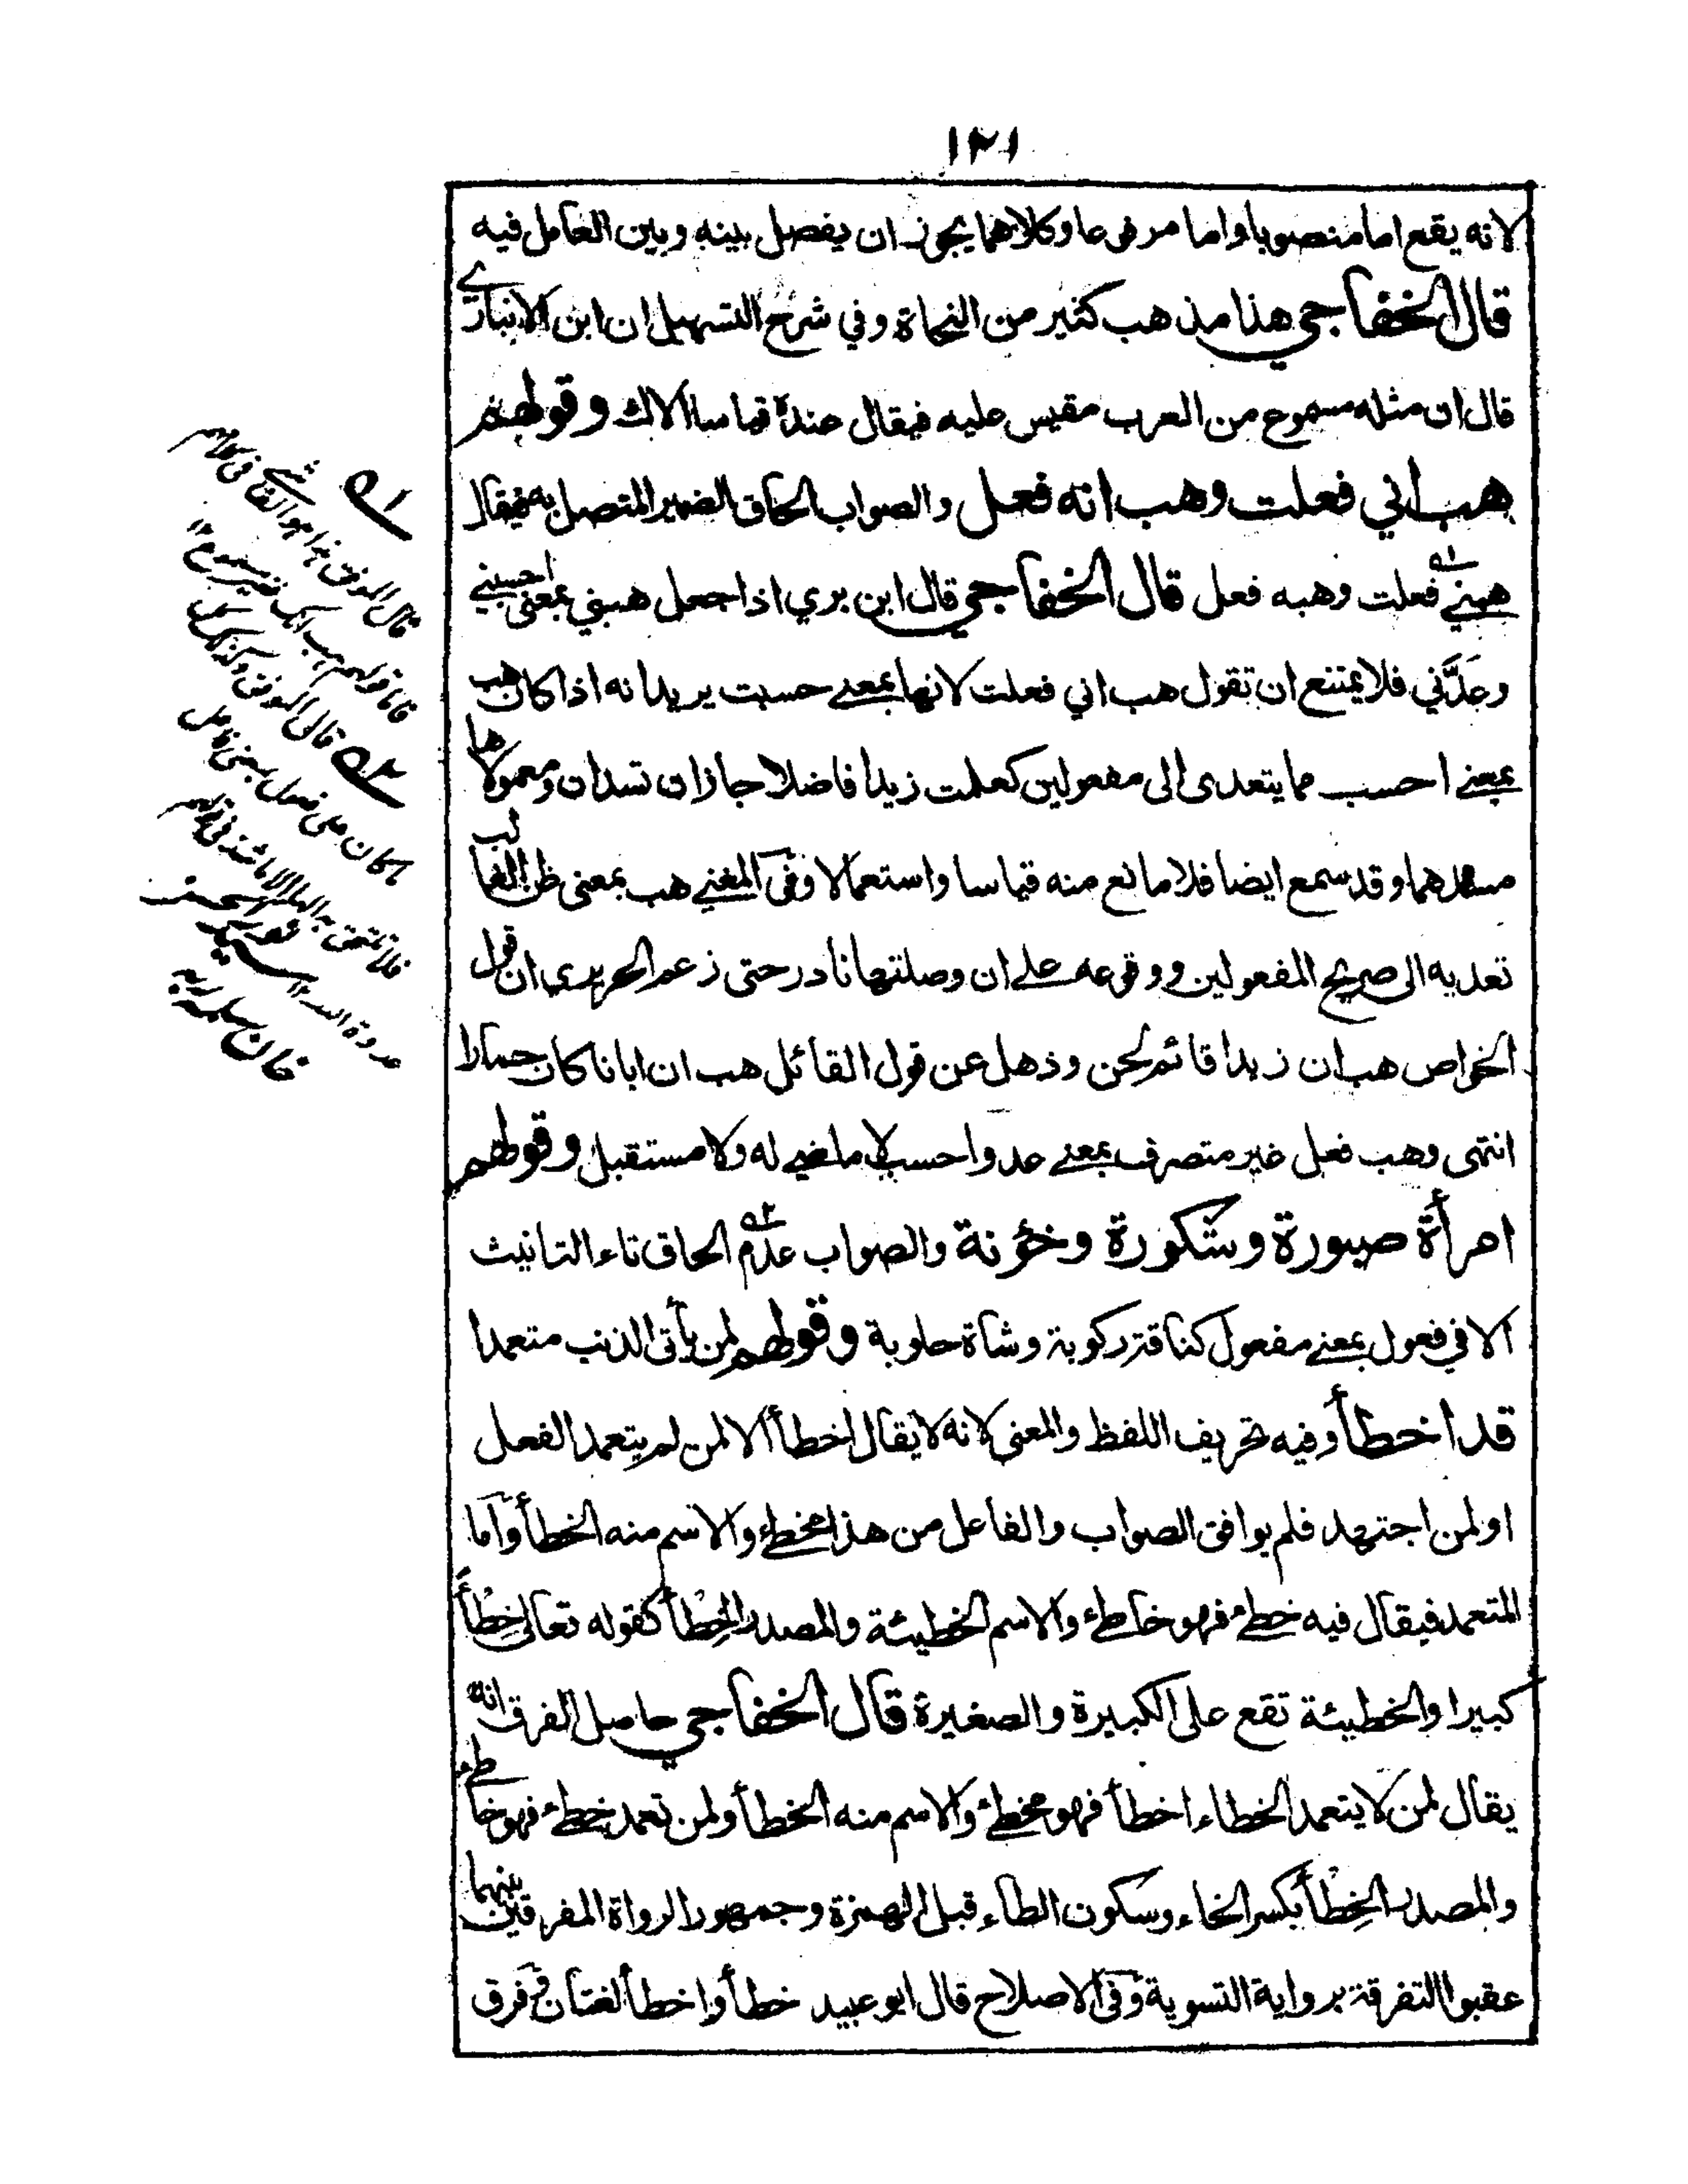 ١٢١
لانه يقع اما منصوبا واما مرفوعا وكلاهما يجوز ان يفصل بينه وبين العامل فيه
قال الخفاجي هذا مذهب كثير من النحاة وفي شرح التسهيل ان ابن الانباري
قال ان مثله مسموع من العرب مقيس عليه فيقال عنده قياسا الاك وقولهم
هب اني فعلت وهب انه فعل والصواب الحاق الضمير المتصل به فيقال
هبني فعلت وهبه فعل قال الخفاجي قال ابن بري اذا جعل هبني بمعنى احسبني
وعَدَّني فلا يمتنع ان تقول هب اني فعلت لانها بمعنى حسبت يريد انه اذا كان هب
بمعنى احسب مما يتعدى الى مفعولين كعلمت زيدا فاضلا جاز ان تسد ان ومعمولاها
مسدهما وقد سمع ايضا فلا مانع منه قياسا واستعمالا وفي المغني هب بمعنى ظن الغالب
تعديه الى صريح المفعولين ووقوعه على ان وصلتها نادر حتى زعم الحريري ان قول
الخواص هب ان زيدا قائم لحن وذهل عن قول القائل هب ان ابانا كان حمارا
انتهى وهب فعل غير متصرف بمعنى عد واحسب لا ماضي له ولا مستقبل وقولهم
امرأة صبورة وشكورة وخؤنة والصواب عدم الحاق تاء التانيث
الا في فعول بمعنى مفعول كناقة ركوبة وشاة حلوبة وقولهم لمن يأتى الذنب متعمدا
قد اخطأ وفيه تحريف اللفظ والمعنى لانه لا يقال اخطأ الا لمن لم يتعمد الفعل
او لمن اجتهد فلم يوافق الصواب والفاعل من هذا مخطئ والاسم منه الخطأ واما
المتعمد فيقال فيه خطئ فهو خاطئ والاسم الخطيئة والمصدر الخِطْأ كقوله تعالى خِطْأً
كبيرا والخطيئة تقع على الكبيرة والصغيرة قال الخفاجي حاصل الفرق انه
يقال لمن لا يتعمد الخطاء اخطأ فهو مخطئ والاسم منه الخطأ ولمن تعمد خطئ فهو خاطئ
والمصدر الخِطْأ بكسر الخاء وسكون الطاء قبل الهمزة وجمهور الرواة المفرقين بينهما
عقبوا التفرقة برواية التسوية وفي الاصلاح قال ابو عبيد خطأ واخطأ لغتان وفرق
قال الموفق هذا هو الفاشي في كلامهم
فاما قولهم هب انك فغير مسموع
قال الموفق وكذلك كل
ما كان على فعول بمعنى فاعل
فلا تلتحق به الهاء الا ما شذ
خان سلمه ربه